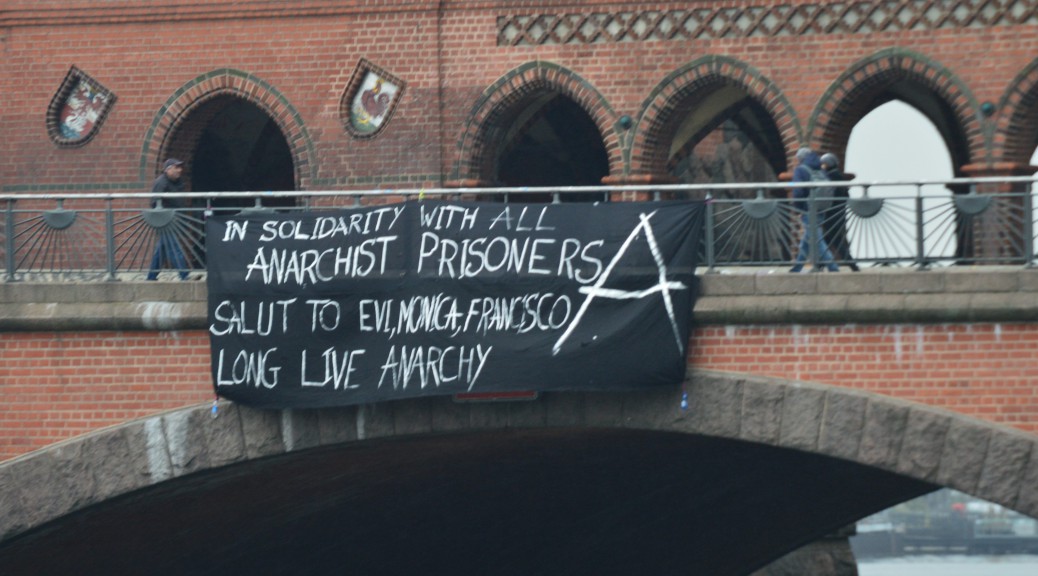 IN SOLIDARITY WITH ALL
ANARCHIST PRISONERS
SALUT TO EVI, MONICA, FRANCISCO
LONG LIVE ANARCHY
A